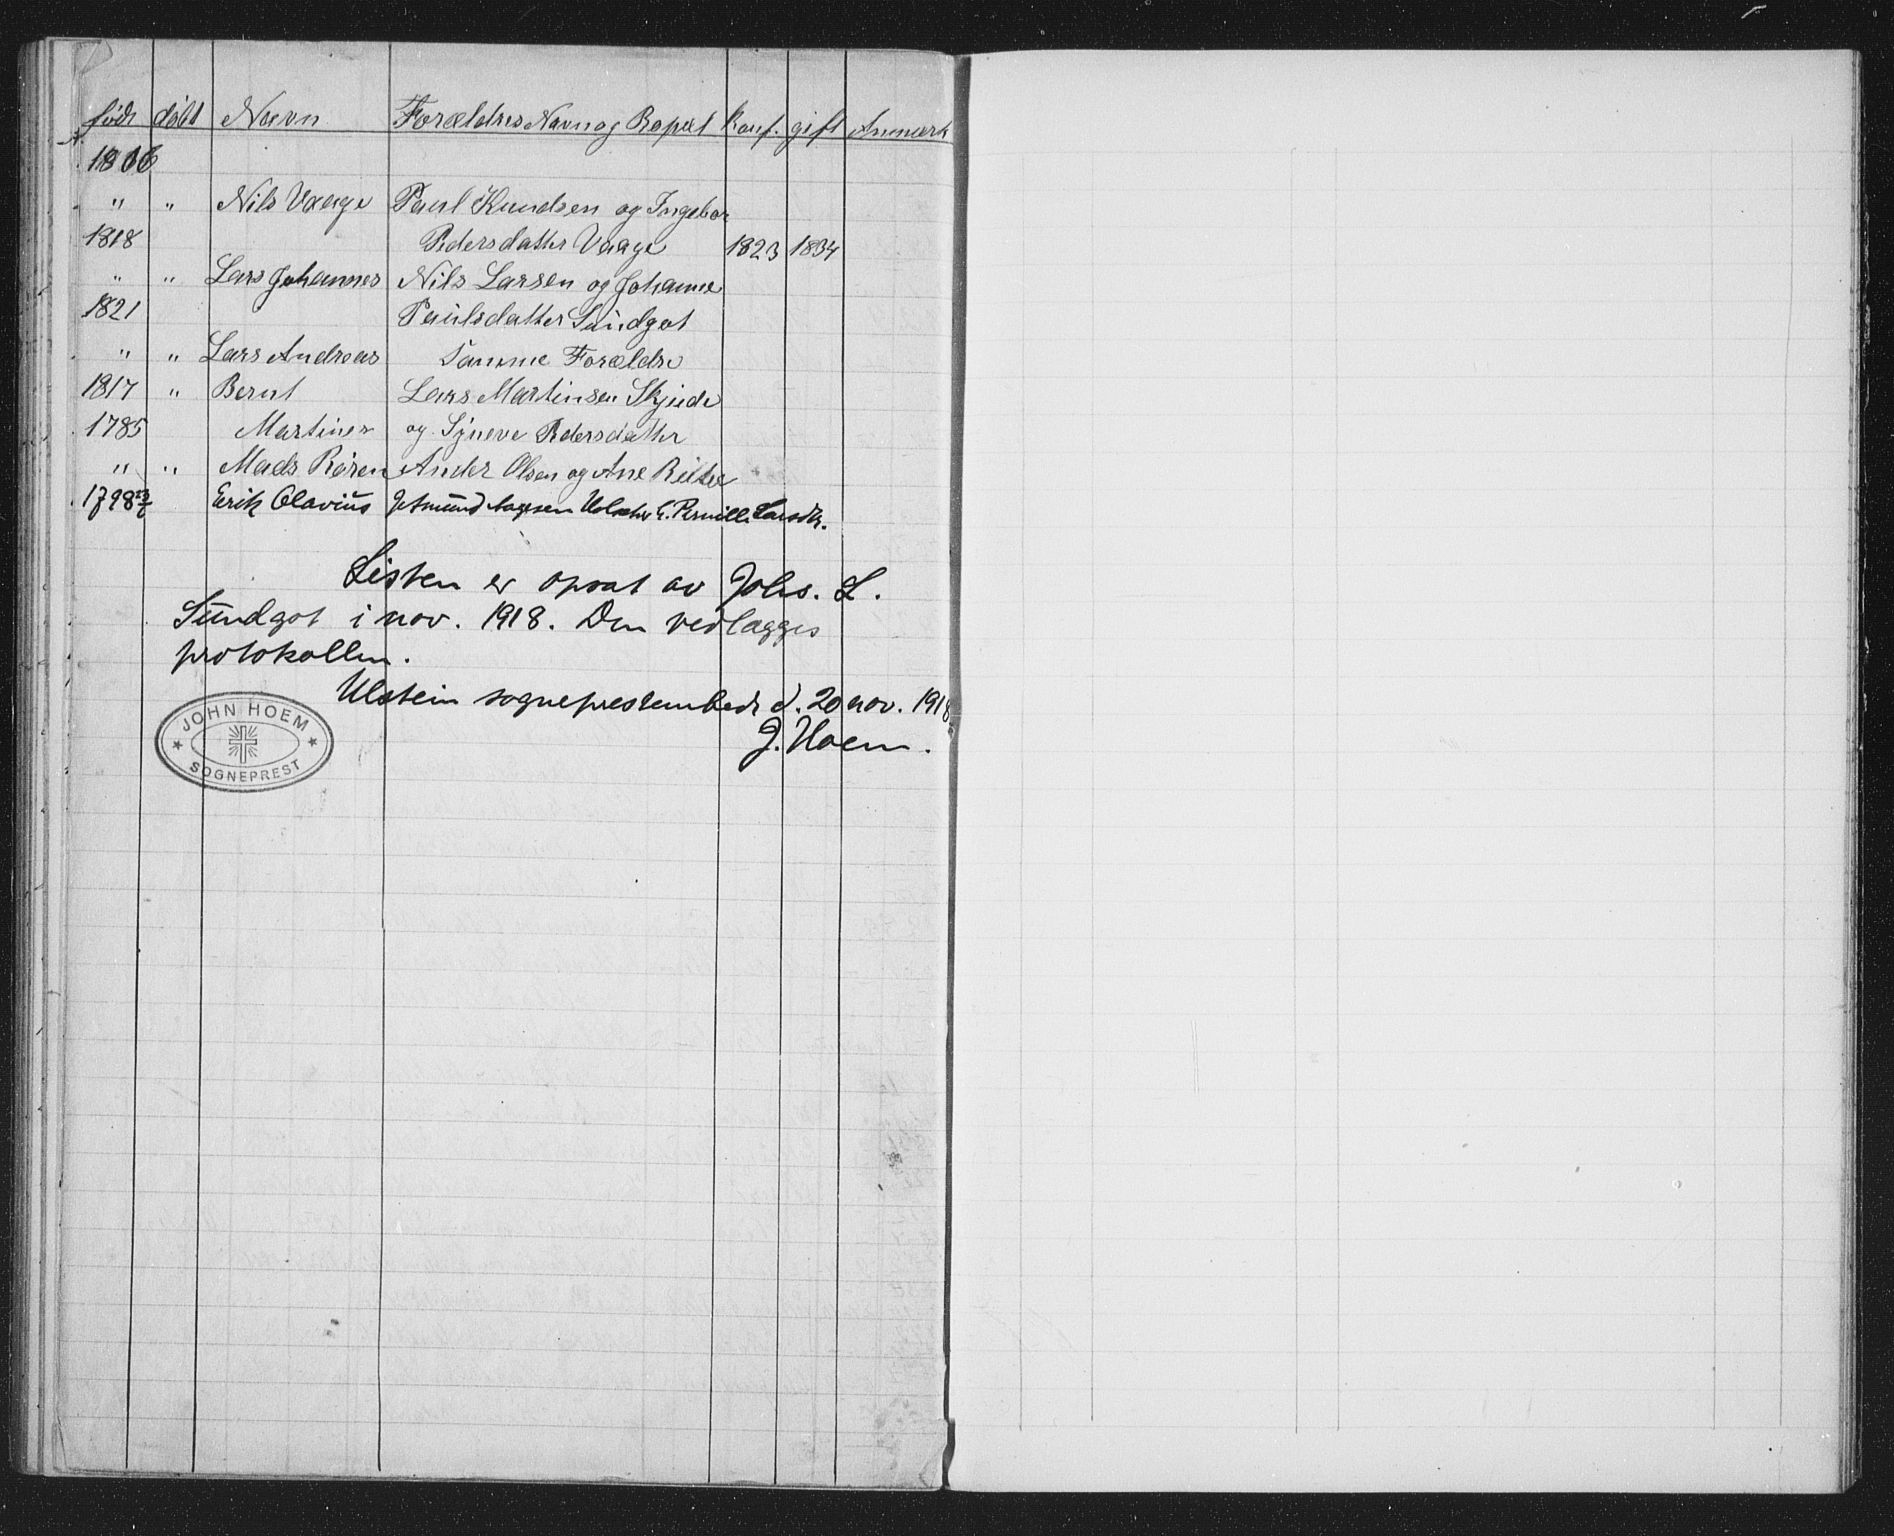 født døbt Navn Forældres Navn og Bopæl konf. gift Anmærk
1806
" " Nils Vaage Paul Knudsen og Ingebor
1818 Pedersdatter Vaage 1823 1834
" " Lars Johannes Nils Larsen og Johanne
1821 Paulsdatter Sundgot
" " Lars Andreas Samme Forældre
1817 " Bernt Lars Martinsen Skjeide
1785 Martines og Syneve Pedersdatter
" " Mads Røren Ander Olsen og Ane
1798 Erik Olavius Larsdtr.
Listen er opsat av Johs. L.
Sundgot i nov. 1918. Den vedlægges
protokollen.
Ulstein sogneprestembede d. 20 nov. 1918
J. Hoem.
JOHN HOEM
SOGNEPREST